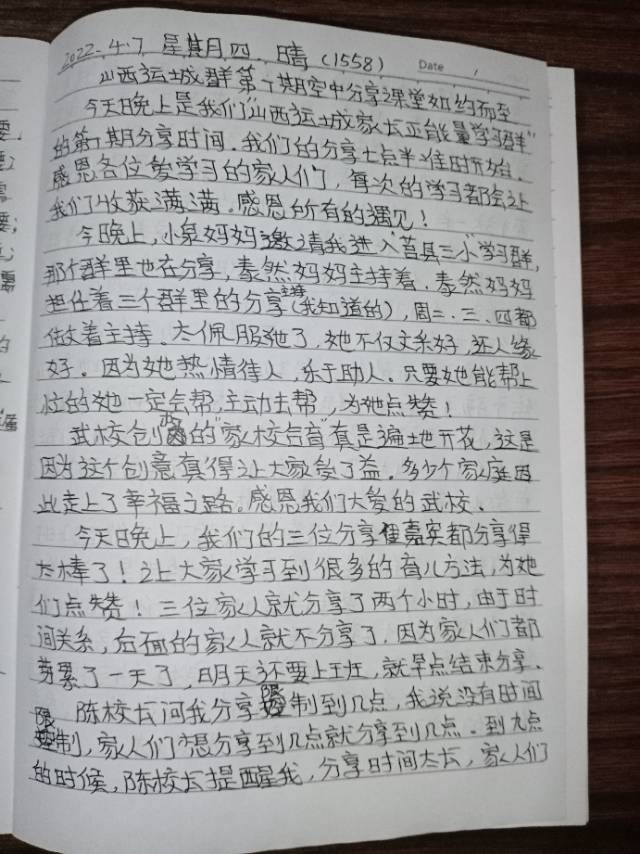 2022.4.7 星期四.晴（1558） Date
山西运城群第1期空中分享课堂如约而至
今天晚上是我们"山西运城家长正能量学习群"
的第1期分享时间.我们的分享七点半准时开始.
感恩各位爱学习的家人们，每次的学习都会让
我们收获满满.感恩所有的遇见！
今晚上,小泉妈妈邀请我进入"莒县三小"学习群,
那个群里也在分享,泰然妈妈主持着.泰然妈妈
担任着三个群里的分享主持(我知道的),周二.三.四都
做着主持.太佩服她了,她不仅文采好,还人缘
好.因为她热情待人,乐于助人.只要她能帮上
忙的她一定会帮,主动去帮,为她点赞！
武校创办的"家校合育"真是遍地开花,这是
因为这个创意真得让大家受了益.多少个家庭因
此走上了幸福之路。感恩我们大爱的武校.
今天晚上,我们的三位分享嘉宾都分享得
太棒了！让大家学习到很多的育儿方法,为她
们点赞！三位家人就分享了两个小时,由于时
间关系,后面的家人就不分享了.因为家人们都
劳累了一天了,明天还要上班,就早点结束分享.
陈校长问我分享限制到几点,我说没有时间
限制,家人们想分享到几点就分享到几点.到九点
的时候,陈校长提醒我,分享时间太长,家人们